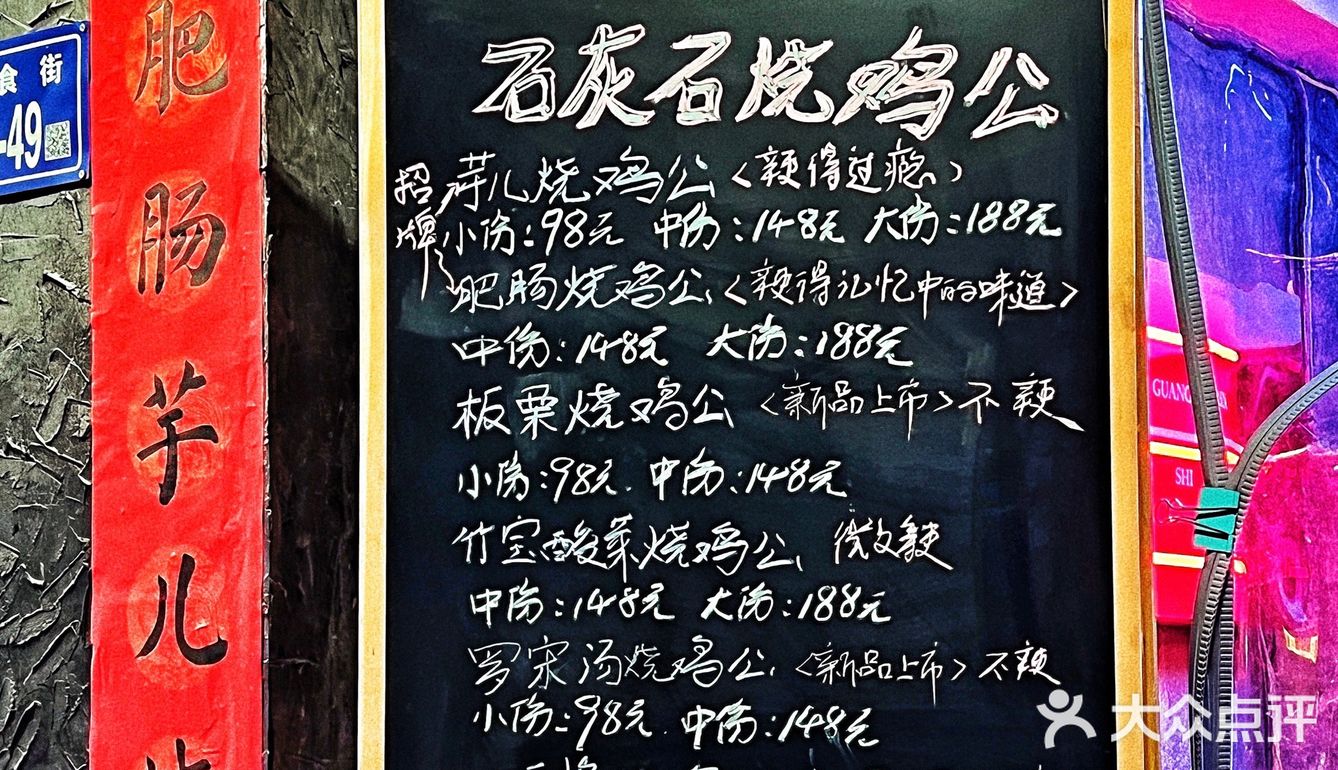 食街
-49
肥肠芋儿
石灰石烧鸡公
招牌
芋儿烧鸡公<辣得过瘾>
小份:98元 中份:148元 大份:188元
肥肠烧鸡公<辣得记忆中的味道>
中份:148元 大份:188元
板栗烧鸡公<新品上市>不辣
小份:98元 中份:148元
竹宝酸菜烧鸡公 微微辣
中份:148元 大份:188元
罗宋汤烧鸡公<新品上市>不辣
小份:98元 中份:148元
SHI
大众点评